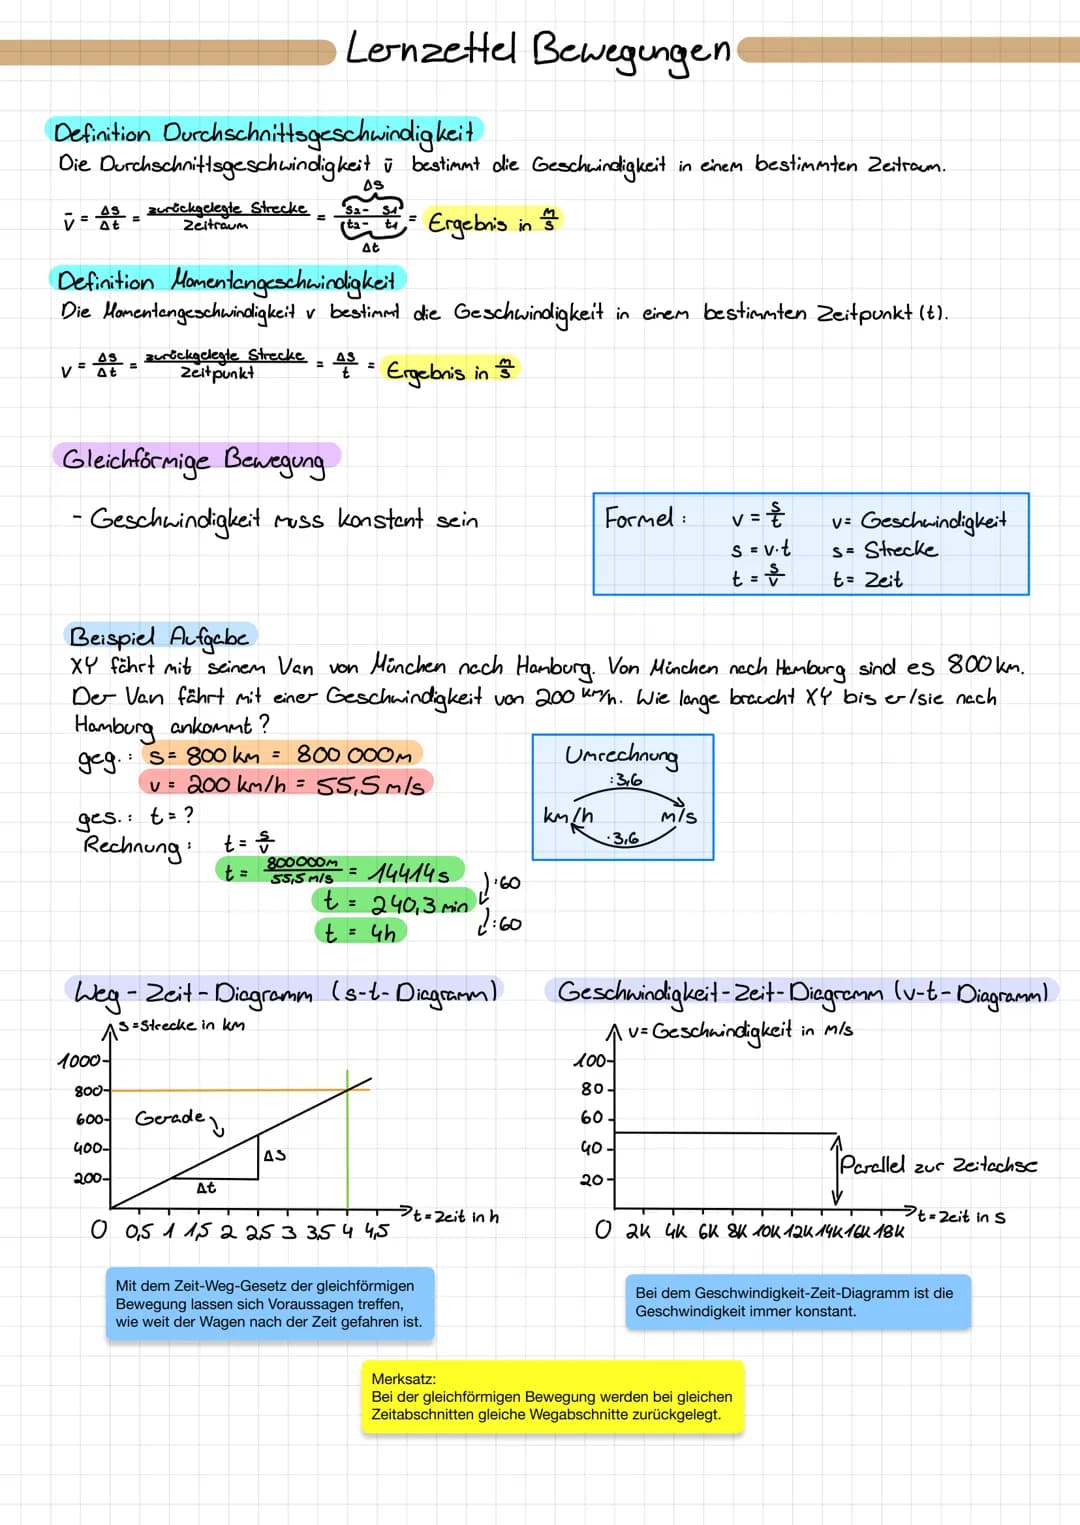 Lernzettel Bewegungen
Definition Durchschnittsgeschwindigkeit
Die Durchschnittsgeschwindigkeit v̄ bestimmt die Geschwindigkeit in einem bestimmten Zeitraum.
v̄ = Δs/Δt = zurückgelegte Strecke/Zeitraum = (s2 - s1)/(t2 - t1) = Ergebnis in m/s
Δs
Δt
Definition Momentangeschwindigkeit
Die Momentangeschwindigkeit v bestimmt die Geschwindigkeit in einem bestimmten Zeitpunkt (t).
v = Δs/Δt = zurückgelegte Strecke/Zeitpunkt = Δs/t = Ergebnis in m/s
Gleichförmige Bewegung
- Geschwindigkeit muss konstant sein
Formel: v = s/t v= Geschwindigkeit
s = v·t s= Strecke
t = s/v t= Zeit
Beispiel Aufgabe
XY fährt mit seinem Van von München nach Hamburg. Von München nach Hamburg sind es 800 km.
Der Van fährt mit einer Geschwindigkeit von 200 km/h. Wie lange braucht XY bis er/sie nach
Hamburg ankommt?
geg.: s= 800 km = 800 000m
v = 200 km/h = 55,5 m/s
ges.: t = ?
Rechnung: t = s/v
t = 800000m/55,5 m/s = 14414s
:60
t = 240,3 min
:60
t = 4h
Umrechnung
:3,6
km/h m/s
·3,6
Weg - Zeit - Diagramm (s-t- Diagramm)
s=Strecke in km
1000
800
600
400
200
Gerade
Δs
Δt
t=Zeit in h
0 0,5 1 1,5 2 2,5 3 3,5 4 4,5
Geschwindigkeit-Zeit-Diagramm (v-t-Diagramm)
v= Geschwindigkeit in m/s
100
80
60
40
20
Parallel zur Zeitachse
t=Zeit in s
0 2K 4K 6K 8K 10K 12K 14K 16K 18K
Mit dem Zeit-Weg-Gesetz der gleichförmigen
Bewegung lassen sich Voraussagen treffen,
wie weit der Wagen nach der Zeit gefahren ist.
Bei dem Geschwindigkeit-Zeit-Diagramm ist die
Geschwindigkeit immer konstant.
Merksatz:
Bei der gleichförmigen Bewegung werden bei gleichen
Zeitabschnitten gleiche Wegabschnitte zurückgelegt.